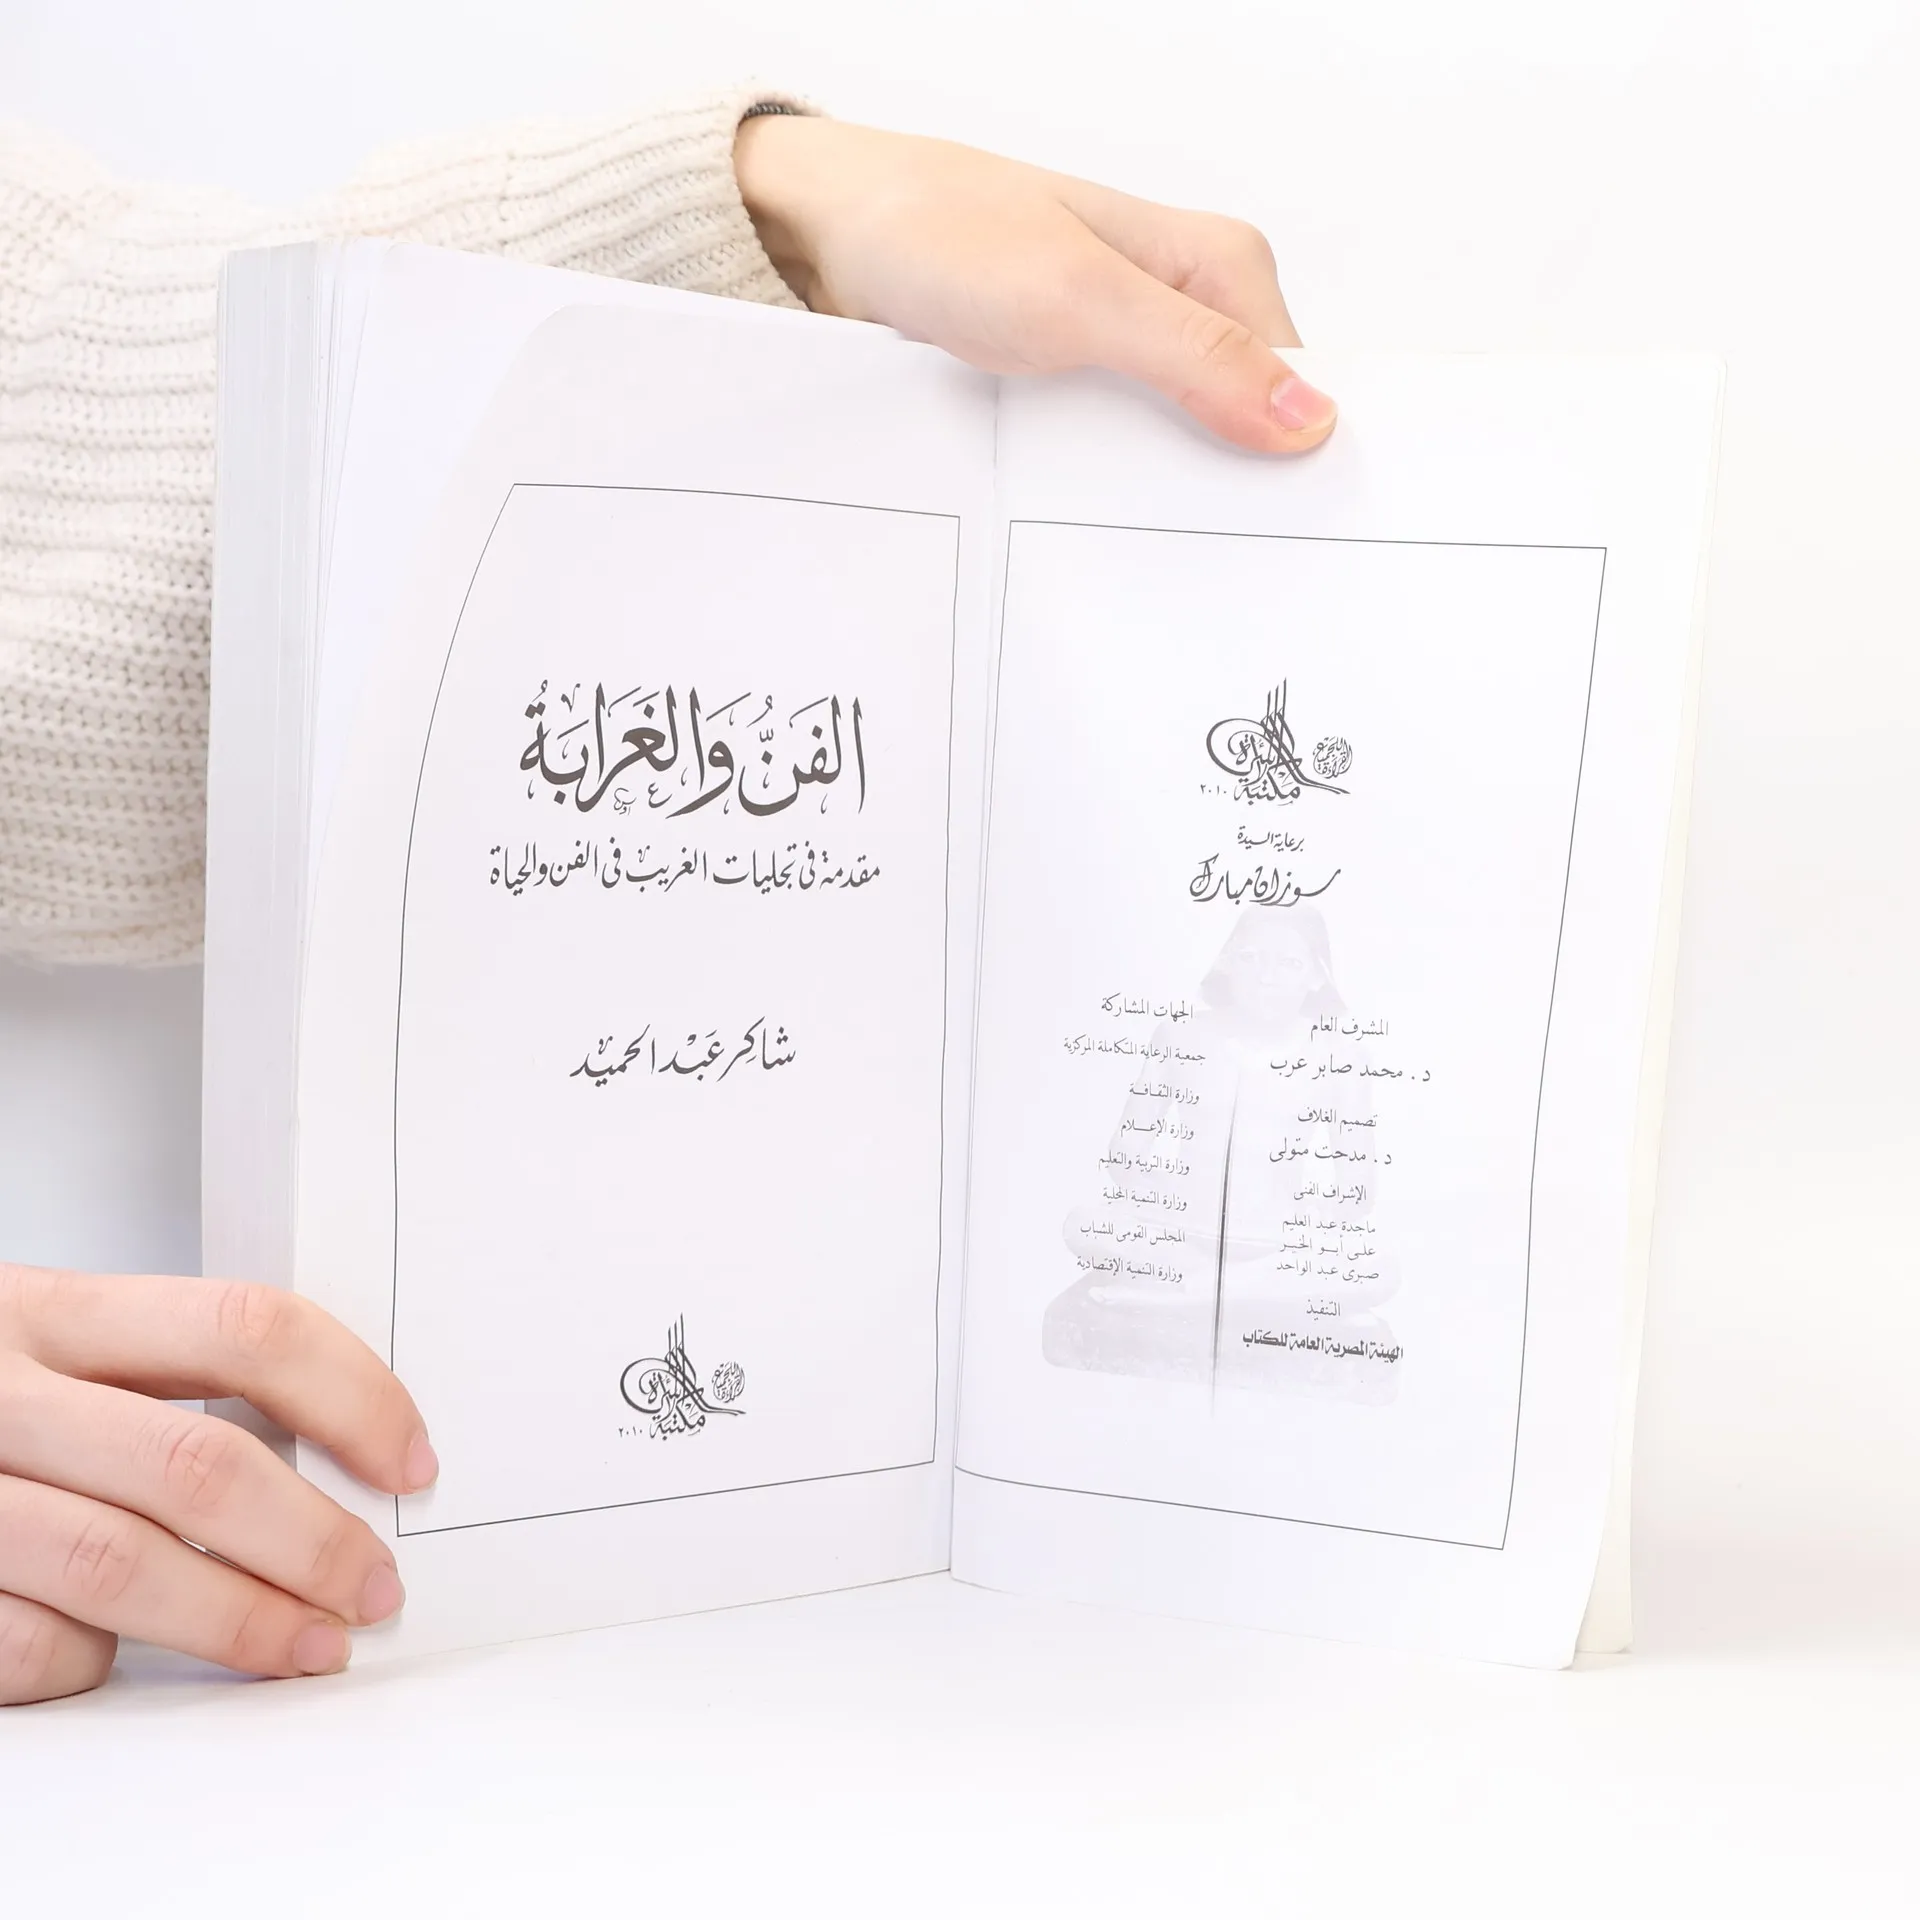 مكتبة الأسرة
القراءة للجميع
٢٠١٠
برعاية السيدة
سوزان مبارك
المشرف العام
د. محمد صابر عرب
تصميم الغلاف
د. مدحت متولى
الإشراف الفنى
ماجدة عبد العليم
على أبو الخير
صبرى عبد الواحد
التنفيذ
الهيئة المصرية العامة للكتاب
الجهات المشاركة
جمعية الرعاية المتكاملة المركزية
وزارة الثقافة
وزارة الإعلام
وزارة التربية والتعليم
وزارة التنمية المحلية
المجلس القومى للشباب
وزارة التنمية الإقتصادية
الفَنُّ وَالغَرَابَةُ
مقدمة فى تجليات الغريب فى الفن والحياة
شاكِر عَبْد الحميد
مكتبة الأسرة
القراءة للجميع
٢٠١٠